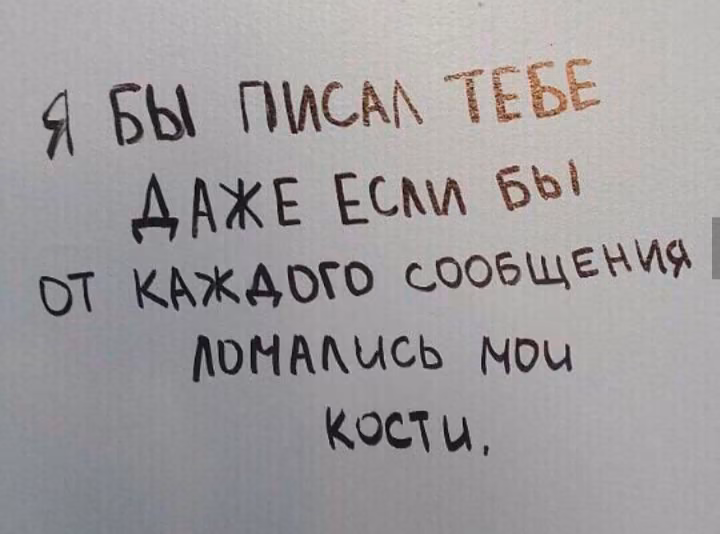 Я БЫ ПИСАЛ ТЕБЕ
ДАЖЕ ЕСЛИ БЫ
ОТ КАЖДОГО СООБЩЕНИЯ
ЛОМАЛИСЬ МОИ
КОСТИ.